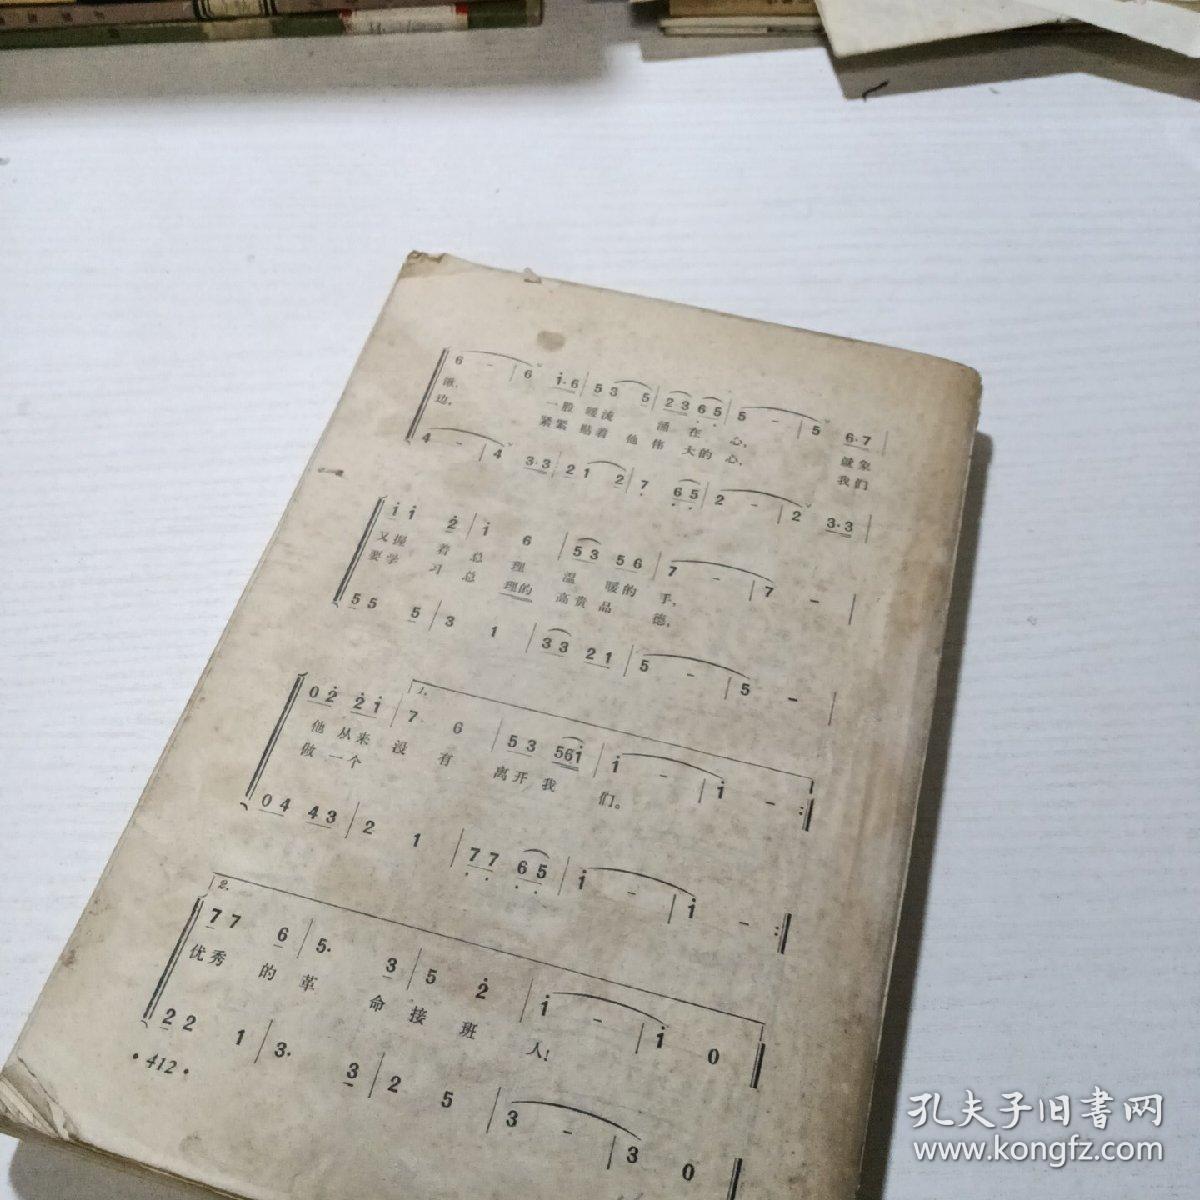 6 - | 6 1·6 | 5 3 5 | 2 3 6 5 | 5 - | 5 6·7 |
一股暖流 涌在心, 就象
边, 紧紧贴着他伟大的心, 我们
4 - | 4 3·3 | 2 1 2 | 7 6 5 | 2 - | 2 3·3 |
1 1 2 | 1 6 | 5 3 5 6 | 7 - | 7 - |
又握着总理温暖的手,
要学习总理的高贵品德,
5 5 5 | 3 1 | 3 3 2 1 | 5 - | 5 - |
1.
0 2 2 1 | 7 6 | 5 3 5 6 1 | 1 - | 1 - :|
他从来没有离开我们。
做一个
0 4 4 3 | 2 1 | 7 7 6 5 | 1 - | 1 - :|
2.
7 7 6 | 5· 3 | 5 2 | 1 - | 1 0 ‖
优秀的革命接班人!
2 2 1 | 3· 3 | 2 5 | 3 - | 3 0 ‖
·412·
孔夫子旧書网
www.kongfz.com